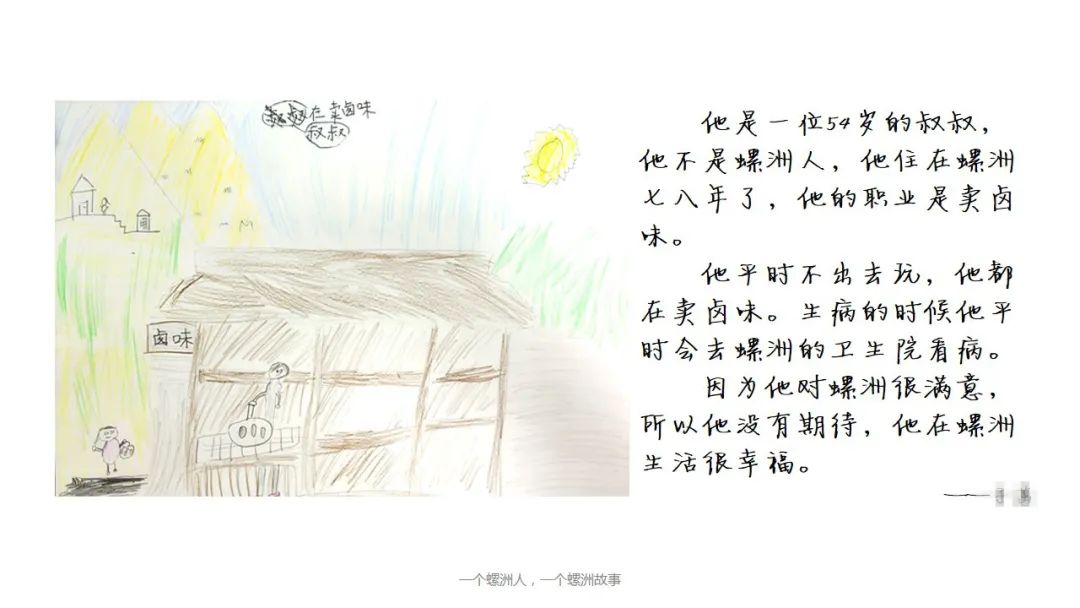 叔叔在卖卤味
叔叔
卤味
他是一位54岁的叔叔，
他不是螺洲人，他住在螺洲
七八年了，他的职业是卖卤
味。
他平时不出去玩，他都
在卖卤味。生病的时候他平
时会去螺洲的卫生院看病。
因为他对螺洲很满意，
所以他没有期待，他在螺洲
生活很幸福。
一个螺洲人，一个螺洲故事